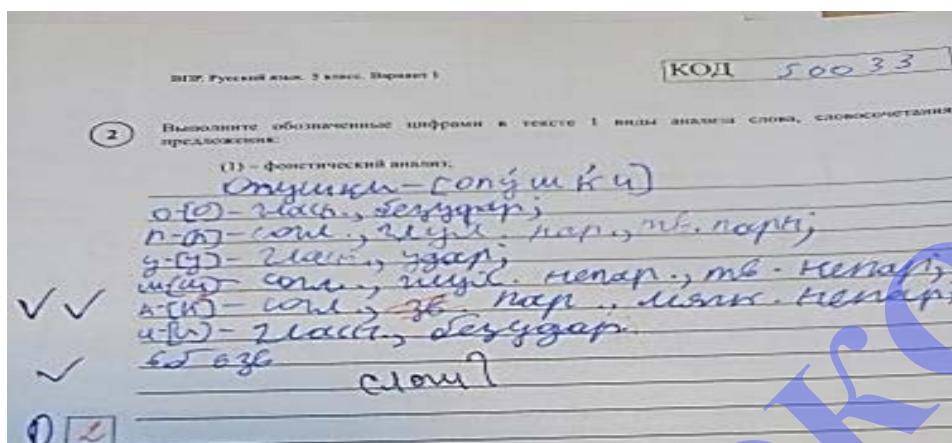 ВПР. Русский язык. 5 класс. Вариант 1
КОД 50033
2 Выполните обозначенные цифрами в тексте 1 виды анализа слова, словосочетания
предложения:
(1) – фонетический анализ;
Опушки – [опу́шк'и]
о-[о]- гласн., безудар;
п-[п]- согл., глух. пар., тв. парн;
у-[у]- гласн., удар;
ш-[ш]- согл., глух. непар., тв. непар;
к-[к]- согл., зв. пар., мягк. непар
и-[и]- гласн., безудар.
6б 6зв
слоги?